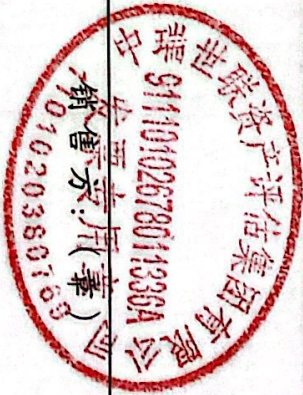 中瑞世联资产评估集团有限公司
91110102678011336A
销售方:(章)
01020380769